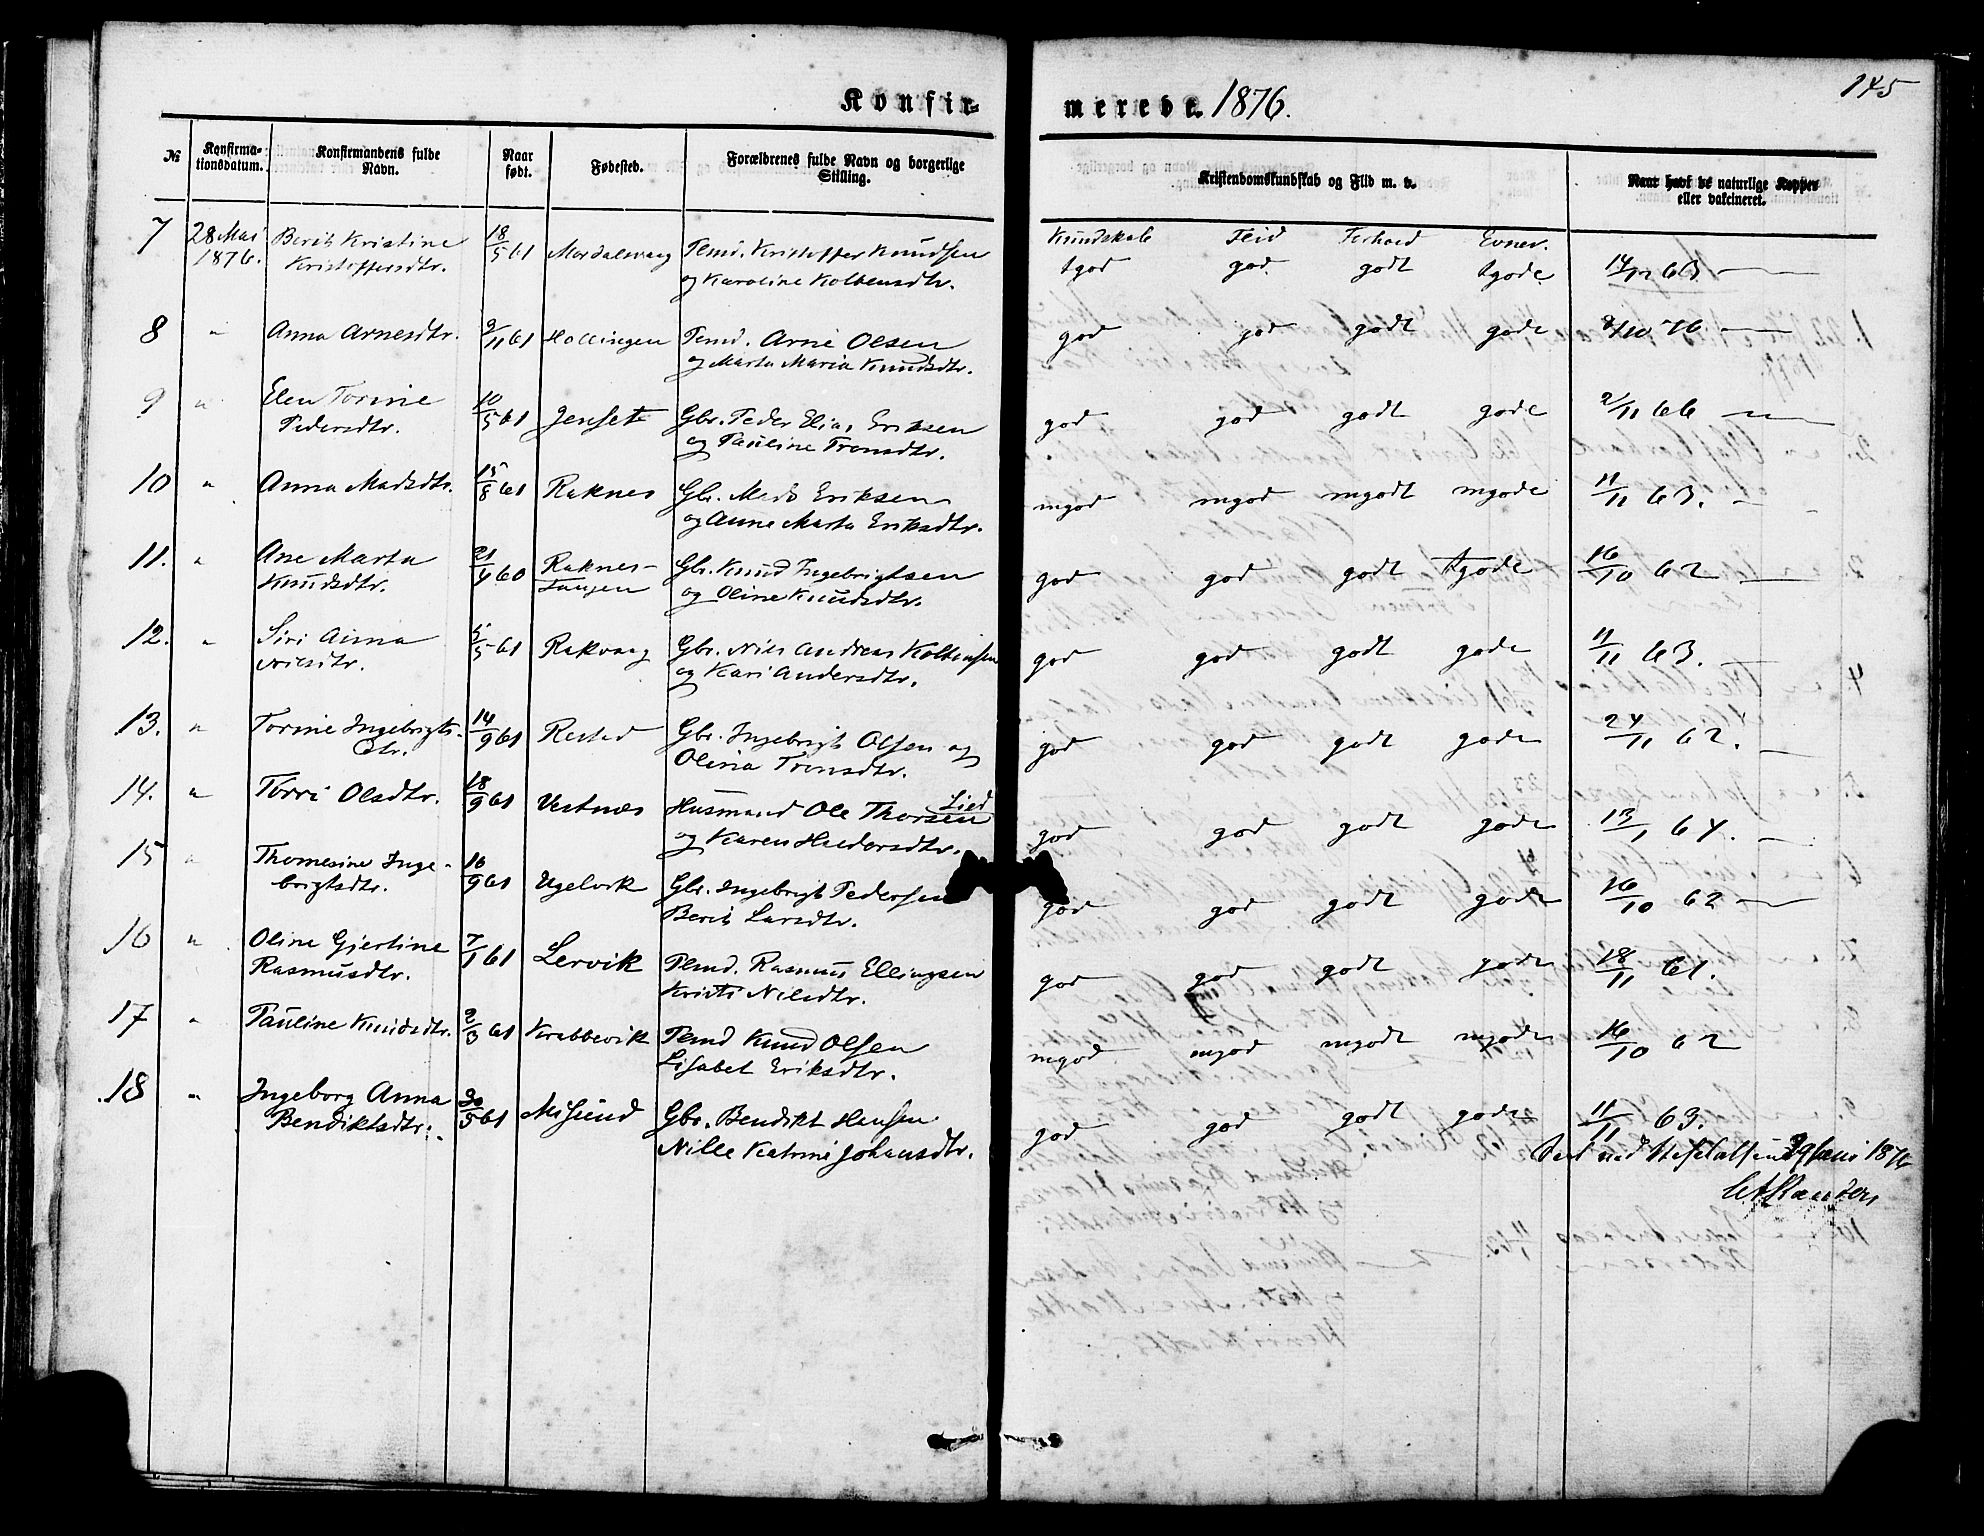 145
Konfirmerede. 1876.
№ Konfirmationsdatum. Konfirmandens fulde Navn. Naar født. Fødested. Forældrenes fulde Navn og borgerlige Stilling. Kristendomskundskab og Flid m. v. Naar havt de naturlige Kopper eller vakcineret.
Kundskab Flid Forhold Evner.
7 28 Mai Berit Kristine 18/5 61 Mordalsvaag Pemd. Kristoffer Knudsen tgod god godt tgode 14/12 63
1876. Kristoffersdtr. og Karoline Kolbensdtr.
8 " Anna Arnesdtr. 9/11 61 Hollingen Pemd. Arne Olsen god god godt gode 8/10 76
og Marta Maria Knudsdtr.
9 " Elen Torine 10/5 61 Jenset Gbr. Peder Elias Eriksen god god godt gode 2/11 66
Pedersdtr. og Pauline Tronsdtr.
10 " Anna Madsdtr. 15/8 61 Raknes Gbr. Mads Eriksen mgod mgod mgodt mgode 11/11 63.
og Anne Marta Eriksdtr.
11. " Ane Marta 21/4 60 Raknes- Gbr. Knud Ingebrigtsen god god godt tgode 16/10 62
Knudsdtr. Tangen og Oline Knudsdtr.
12. " Siri Anna 5/5 61 Rakvaag Gbr. Nils Andreas Kolbensen god god godt gode 11/11 63.
Nilsdtr. og Kari Andersdtr.
13. " Torine Ingebrigts- 14/9 61 Rested Gbr. Ingebrigt Olsen og god god godt gode 24/11 62.
dtr. Olina Tronsdtr.
14. " Torri Olsdtr. 18/9 61 Vestnæs Husmand Ole Thorsen Lied god god godt gode 13/1 64.
og Karen
15 " Thomesine Inge- 16/9 61 Ugelvik Gbr. Ingebrigt Pedersen god god godt gode 16/10 62
brigtsdtr. Berit Larsdtr.
16 " Oline Gjertine 7/1 61 Lervik Pemd. Rasmus Ellingsen god god godt gode 18/11 61.
Rasmusdtr. Kristi Nilsdtr.
17 " Pauline Knudsdtr. 2/3 61 Krabbevik Pemd Knud Olsen mgod mgod mgodt mgode 16/10 62
Lisabet Eriksdtr.
18 " Ingeborg Anna 30/5 61 Misund Gbr. Bendikt Hansen god god godt gode 11/11 63.
Bendiktsdtr. Nille Katrine Johansdtr.
1876